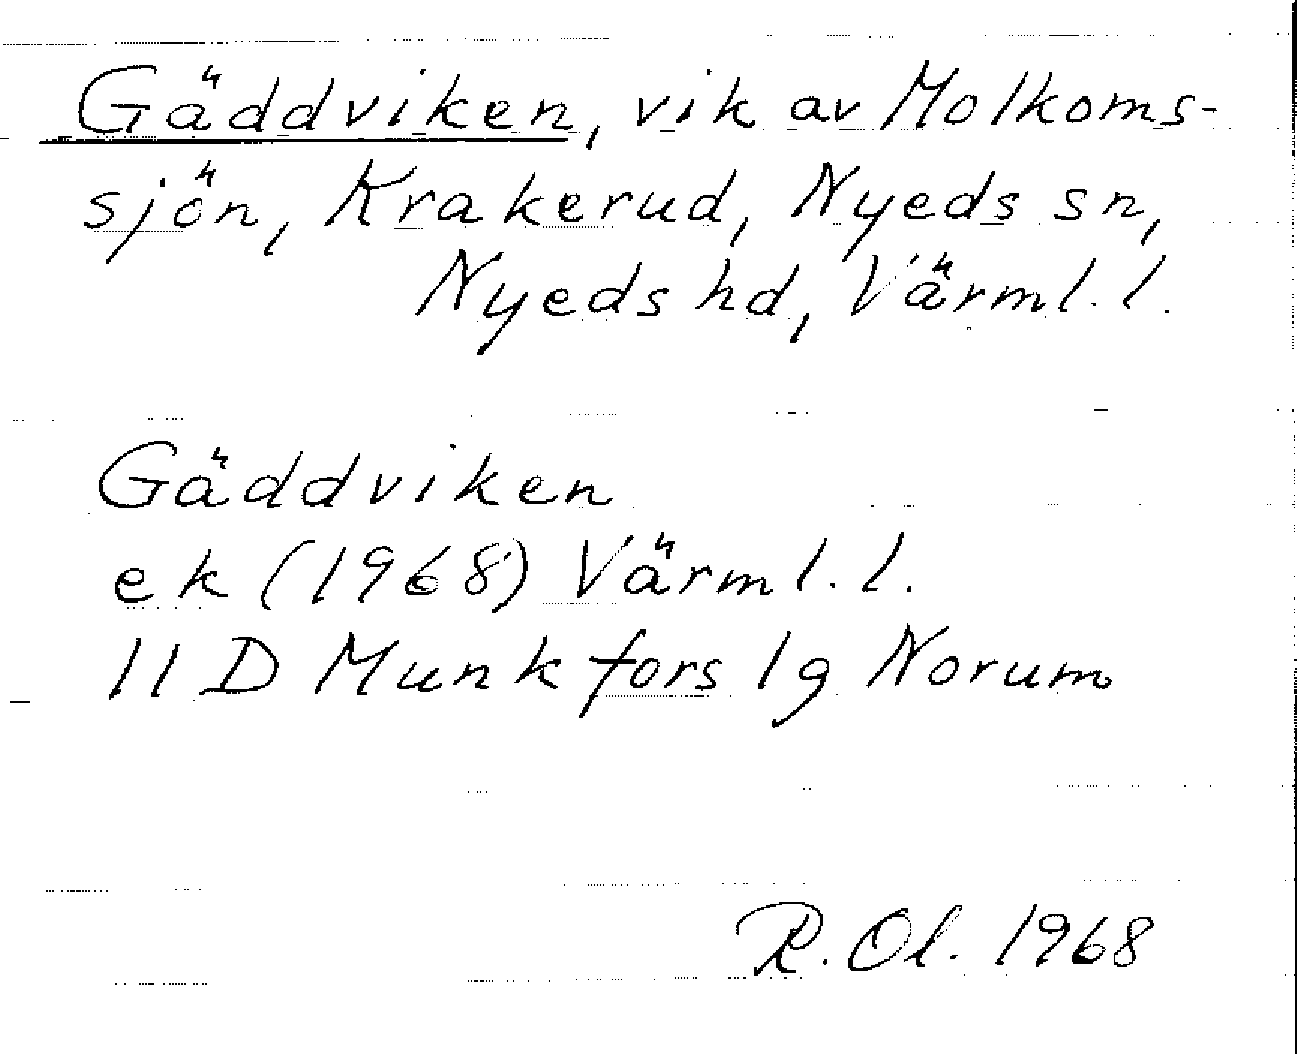 Gäddviken, vik av Molkoms-
sjön, Krakerud, Nyeds sn,
Nyeds hd, Värml. l.
Gäddviken
ek (1968) Värml. l.
11 D Munkfors 1g Norum
R. Ol. 1968